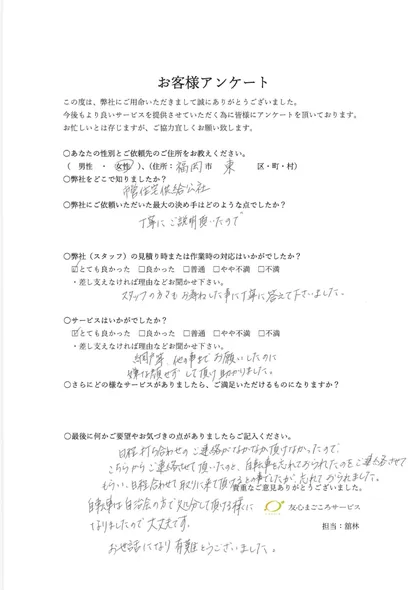 お客様アンケート
この度は、弊社にご用命いただきまして誠にありがとうございました。
今後もより良いサービスを提供させていただく為に皆様にアンケートを頂いております。
お忙しいとは存じますが、ご協力宜しくお願い致します。
○あなたの性別とご依頼先のご住所をお教えください。
( 男性 ・ 女性 )、(住所: 福岡 市 東 区・町・村)
○弊社をどこで知りましたか?
住宅供給公社
○弊社にご依頼いただいた最大の決め手はどのような点でしたか?
丁寧にご説明頂いたので
○弊社(スタッフ)の見積り時または作業時の対応はいかがでしたか?
☑とても良かった □良かった □普通 □やや不満 □不満
・差し支えなければ理由などお聞かせ下さい。
スタッフの方々もお尋ねした事に丁寧に答えて下さいました。
○サービスはいかがでしたか?
☑とても良かった □良かった □普通 □やや不満 □不満
・差し支えなければ理由などお聞かせ下さい。
網戸等、他の事までお願いしたのに
嫌な顔せず して頂け助かりました。
○さらにどの様なサービスがありましたら、ご満足いただけるものになりますか?
○最後に何かご要望やお気づきの点がありましたらご記入ください。
日程打ち合わせのご連絡がなかなか頂けなかったので、
こちらからご連絡させて頂いたのと、自転車を忘れておられたのをご連絡させて
もらい、日程合わせて取りに来て頂けるとの事でしたが、忘れておられました。
貴重なご意見ありがとうございました。
自転車は自治会の方で処分して頂ける様に
なりましたので大丈夫です。
友心まごころサービス
担当:舘林
お世話になり有難とうございました。